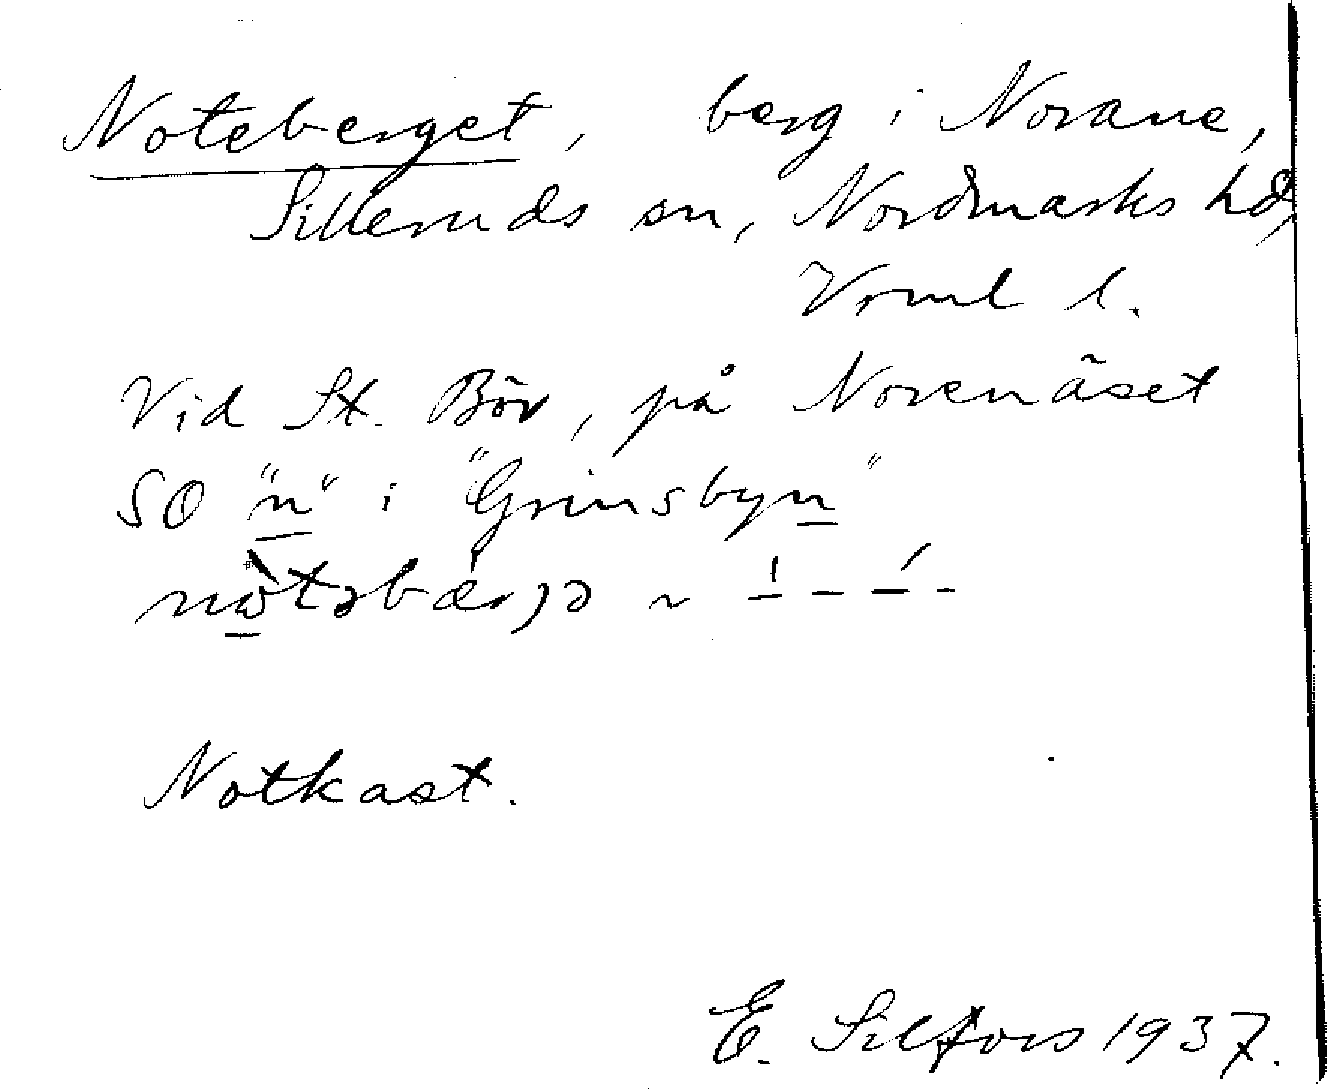 Noteberget, berg i Norane,
Silleruds sn, Nordmarks hd,
Vrml l.
Vid St. Bör, på Norenäset
SO "n" i "Grinsbyn"
nò̱təbærjə ~
Notkast.
E. Silfors 1937.